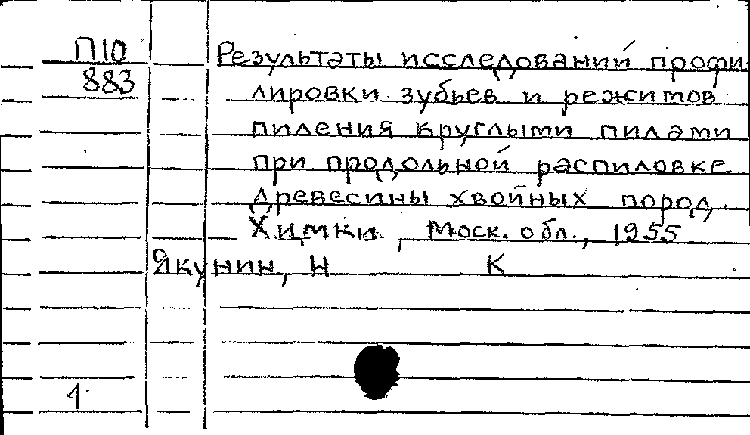 П10
883
Результаты исследований профи
лировки зубьев и режимов
пиления круглыми пилами
при продольной распиловке
древесины хвойных пород.
Химки, Моск. обл., 1955
Якунин, Н К
1